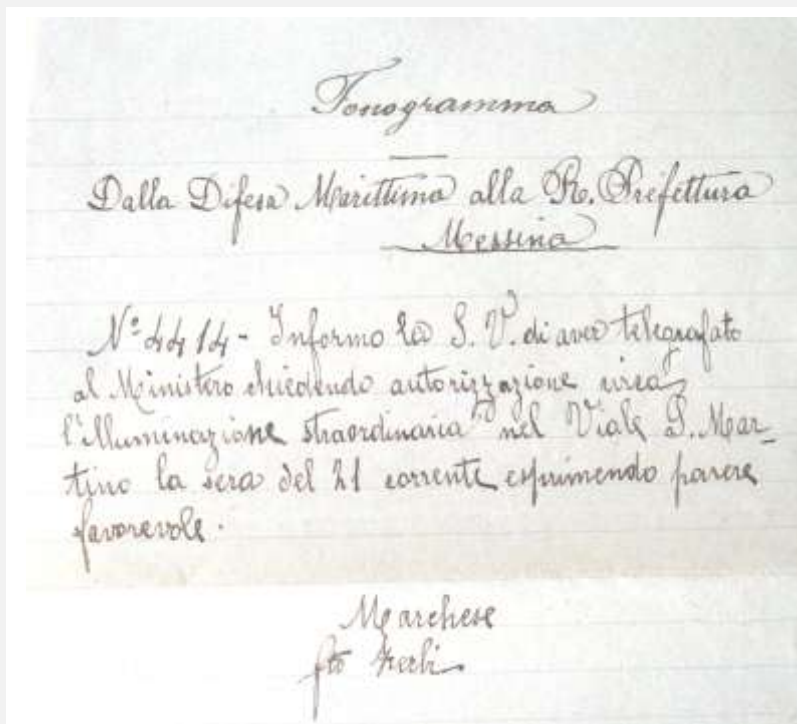 Fonogramma
Dalla Difesa Marittima alla R. Prefettura
Messina
N° 4414 - Informo la S. V. di aver telegrafato
al Ministero chiedendo autorizzazione circa
l'illuminazione straordinaria nel Viale S. Mar-
tino la sera del 21 corrente esprimendo parere
favorevole.
Marchese
fto